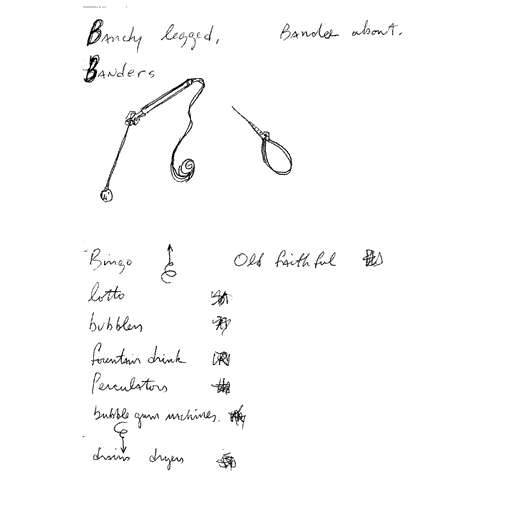 Bandy legged, Bandee about.
Banders
Bingo Old faithful
lotto
bubblers
fountain drink
Perculators
bubble gum machines.
drains dryers